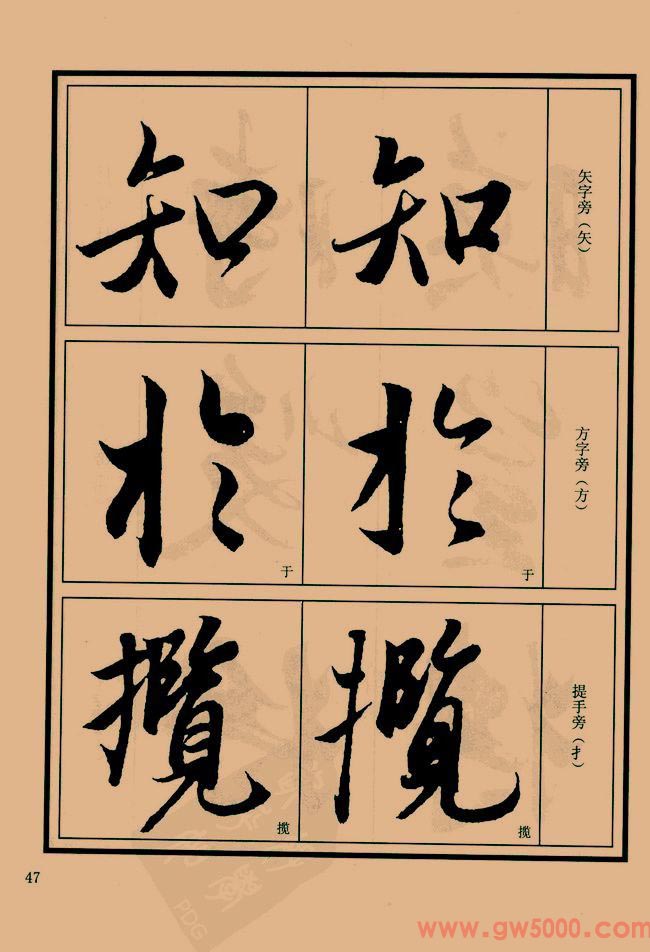 矢字旁（矢）
知
知
方字旁（方）
於
于
於
于
提手旁（扌）
攬
揽
攬
揽
47
PDG
www.gw5000.com